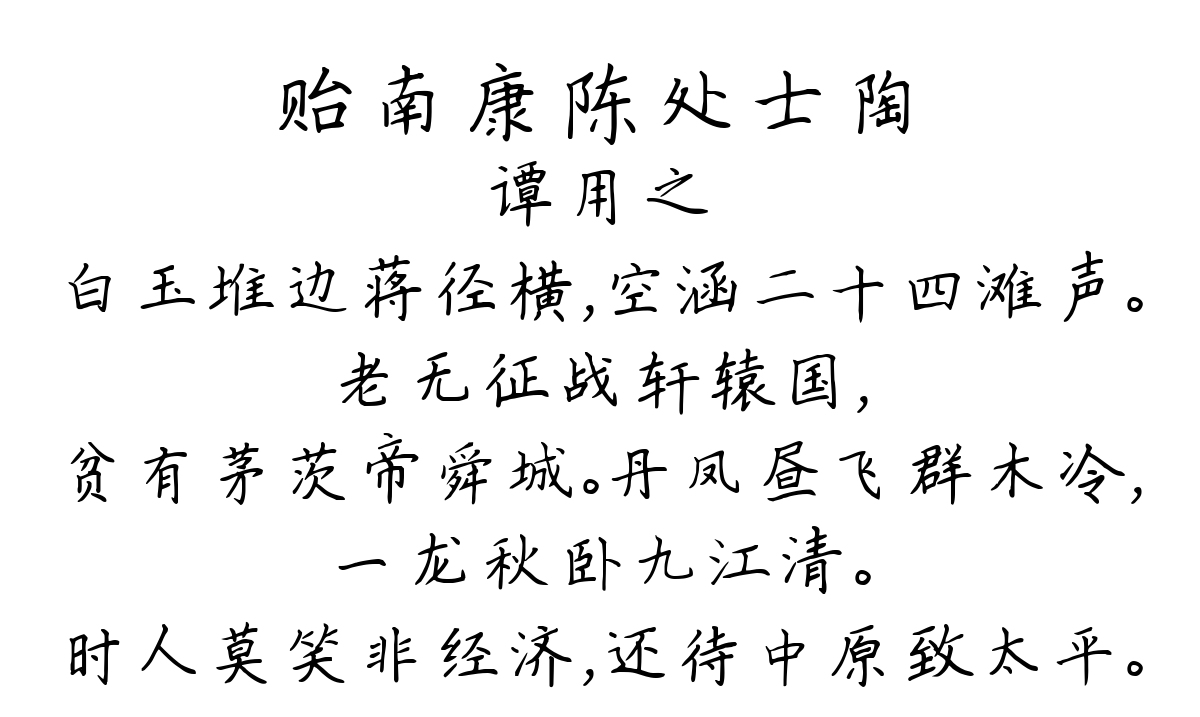 贻南康陈处士陶
谭用之
白玉堆边蒋径横,空涵二十四滩声。
老无征战轩辕国,
贫有茅茨帝舜城。丹凤昼飞群木冷,
一龙秋卧九江清。
时人莫笑非经济,还待中原致太平。